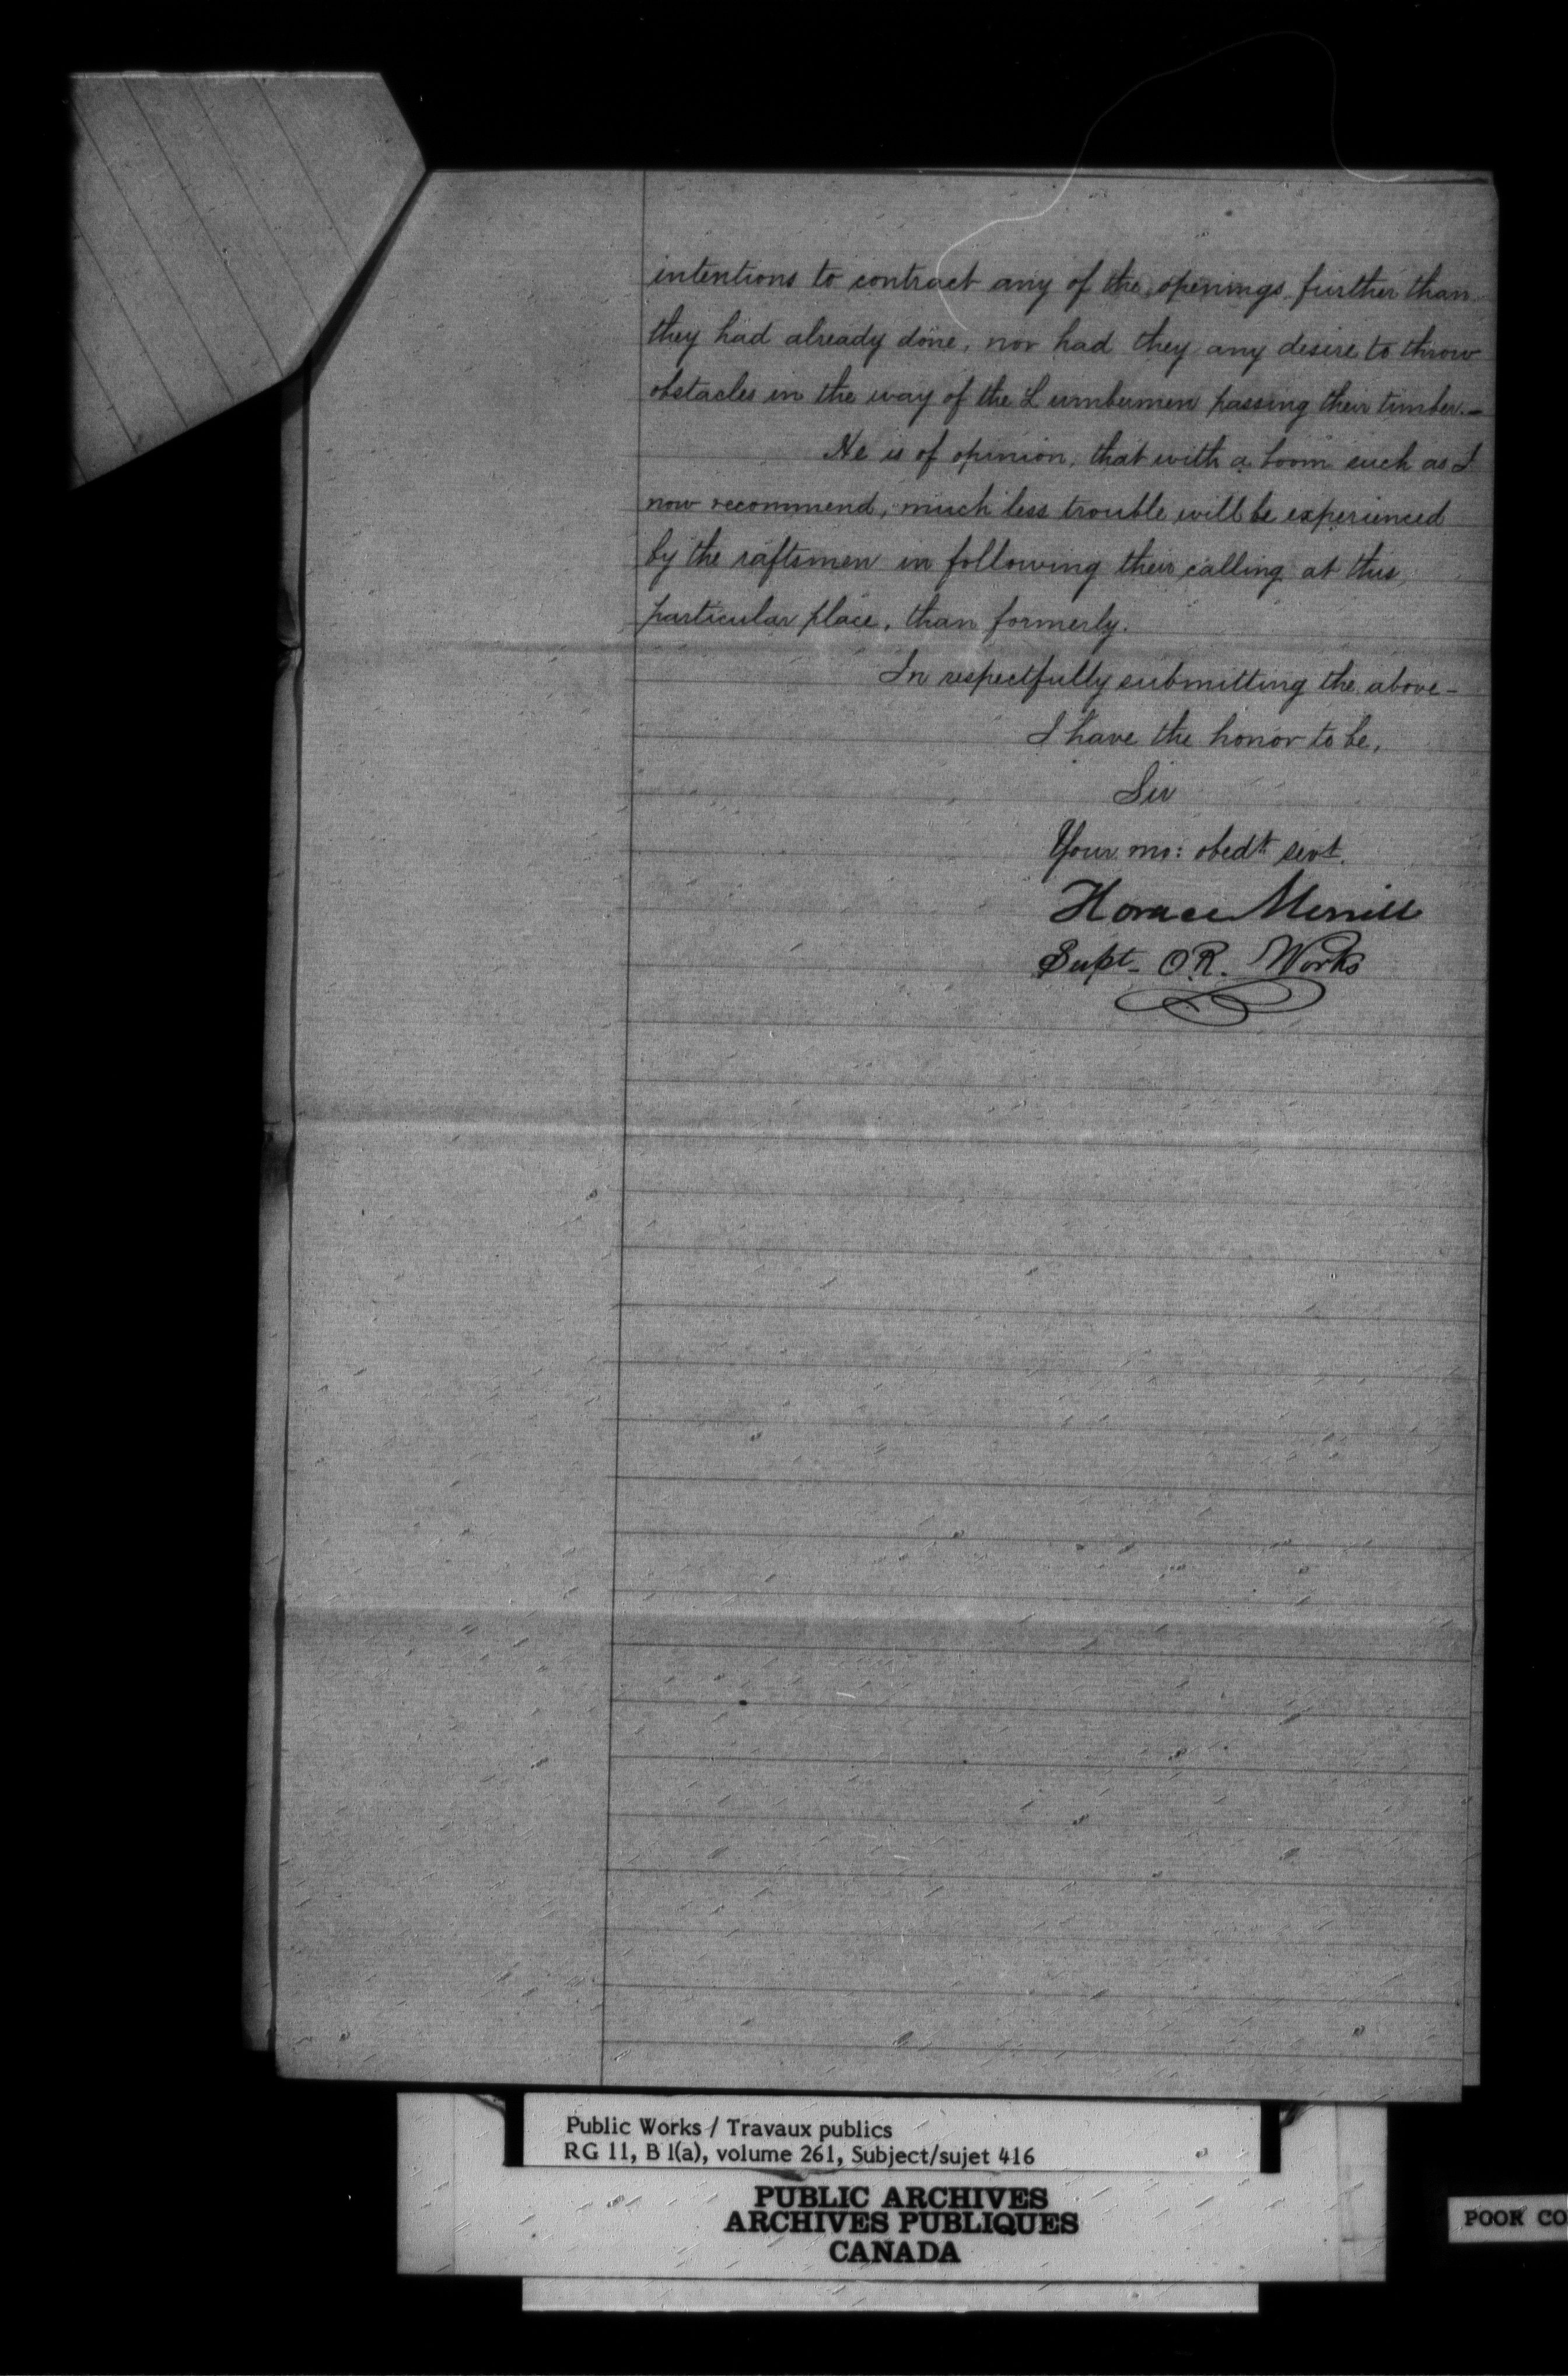 intentions to contract any of the openings further than
they had already done, nor had they any desire to throw
obstacles in the way of the Lumbermen passing their timber.—
He is of opinion, that with a boom such as I
now recommend, much less trouble will be experienced
by the raftsmen in following their calling at this
particular place, than formerly.
In respectfully submitting the above—
I have the honor to be,
Sir
Your mo: obedt servt.
Horace Merrill
Supt. O.R. Works
Public Works / Travaux publics
RG 11, B 1(a), volume 261, Subject/sujet 416
PUBLIC ARCHIVES
ARCHIVES PUBLIQUES
CANADA
POOR CO